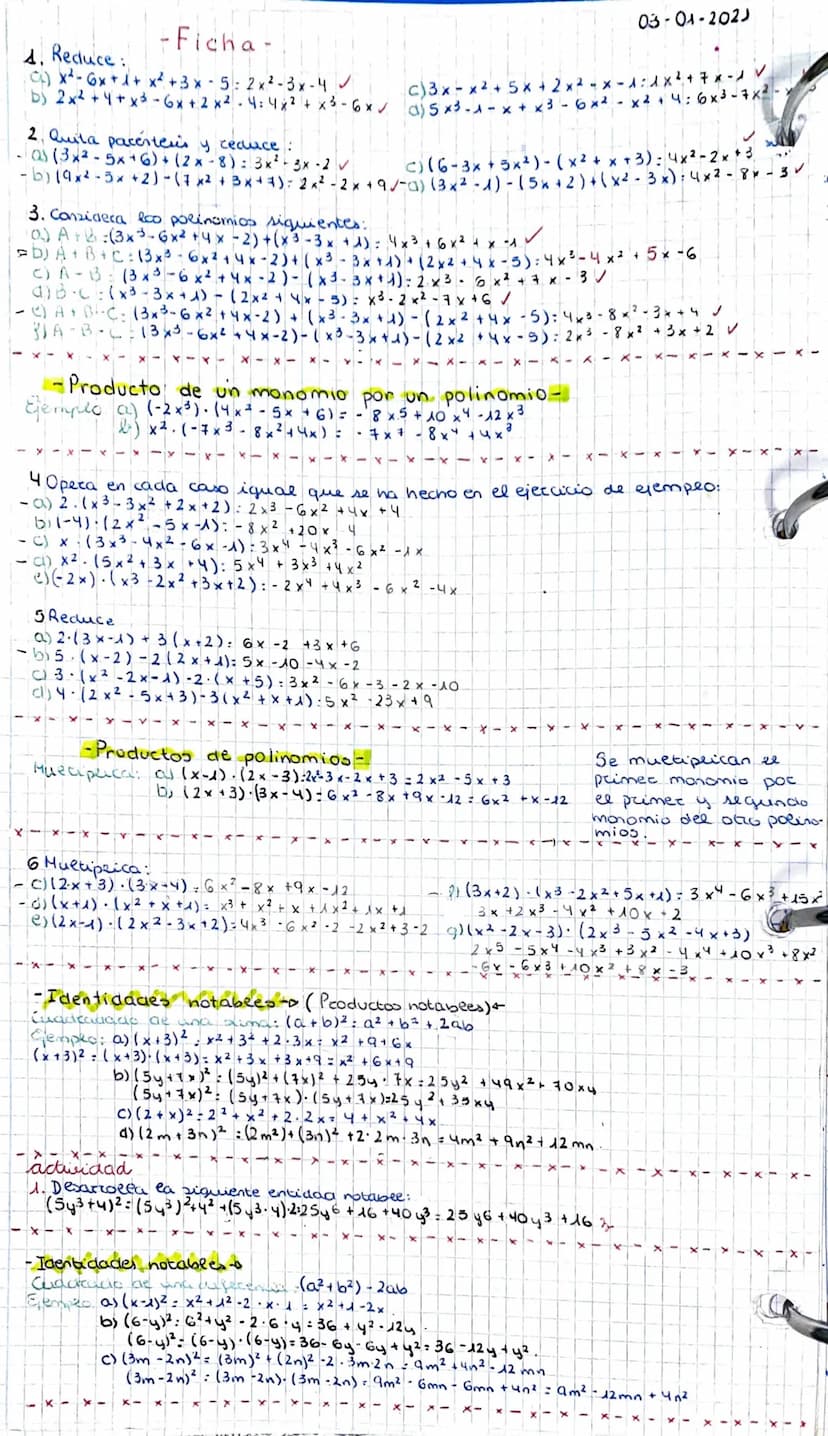 03-01-2021
-Ficha-
1. Reduce:
a) x²-6x+1+x²+3x-5: 2x²-3x-4 ✓
c) 3x-x²+5x+2x²-x-1: 1x²+7x-1 ✓
b) 2x²+4+x³-6x+2x²-4: 4x²+x³-6x ✓
d) 5x³-1-x+x³-6x²-x²+4: 6x³-7x²-x
2. Quita paréntesis y reduce:
a) (3x²-5x+6)+(2x-8): 3x²-3x-2 ✓
c) (6-3x+5x²)-(x²+x+3): 4x²-2x+3
-b) (9x²-5x+2)-(7x²+3x+7): 2x²-2x+9 ✓
-d) (3x²-1)-(5x+2)+(x²-3x): 4x²-8x-3 ✓
3. Considera los polinomios siguientes:
a) A+B: (3x³-6x²+4x-2)+(x³-3x+1): 4x³+6x²+x-1 ✓
b) A+B+C: (3x³-6x²+4x-2)+(x³-3x+1)+(2x2+4x-5): 4x³-4x²+5x-6
c) A-B: (3x³-6x²+4x-2)-(x³-3x+1): 2x³-6x²+7x-3 ✓
d) B-C: (x³-3x+1)-(2x²+4x-5): x³-2x²-7x+6 ✓
-e) A+B-C: (3x³-6x²+4x-2)+(x³-3x+1)-(2x²+4x-5): 4x³-8x²-3x+4 ✓
f) A-B-C: (3x³-6x²+4x-2)-(x³-3x+1)-(2x2+4x-5): 2x³-8x²+3x+2 ✓
-Producto de un monomio por un polinomio-
Ejemplo a) (-2x³)·(4x²-5x+6)=-8x⁵+10x⁴-12x³
b) x²·(-7x³-8x²+4x)=-7x⁷-8x⁴+4x³
4 Opera en cada caso igual que se ha hecho en el ejercicio de ejemplo:
-a) 2·(x³-3x²+2x+2): 2x³-6x²+4x+4
b) (-4)·(2x²-5x-1): -8x²+20x 4
-c) x·(3x³-4x²-6x-1): 3x⁴-4x³-6x²-1x
-d) x²·(5x²+3x+4): 5x⁴+3x³+4x²
e) (-2x)·(x³-2x²+3x+2): -2x⁴+4x³-6x²-4x
5 Reduce
a) 2·(3x-1)+3(x+2): 6x-2+3x+6
-b) 5·(x-2)-2(2x+1): 5x-10-4x-2
c) 3·(x²-2x-1)-2·(x+5): 3x²-6x-3-2x-10
d) 4·(2x²-5x+3)-3(x²+x+1): 5x²-23x+9
-Productos de polinomios-
Multiplica: a) (x-1)·(2x-3): 2x²-3x-2x+3=2x²-5x+3
b) (2x+3)·(3x-4)=6x²-8x+9x-12=6x²+x-12
Se multiplican el
primer monomio por
el primer y segundo
monomio del otro polino-
mios.
6 Multiplica:
-c) (2x+3)·(3x-4)=6x²-8x+9x-12
-d) (x+1)·(x²+x+1)=x³+x²+x+1x²+1x+1
e) (2x-1)·(2x²-3x+2)=4x³-6x²-2-2x²+3-2
-f) (3x+2)·(x³-2x²+5x+1)=3x⁴-6x³+15x²
3x+2x³-4x²+10x+2
g) (x²-2x-3)·(2x³-5x²-4x+3)
2x⁵-5x⁴-4x³+3x²-4x⁴+10x³+8x²
-6x-6x3+10x²+8x-3
-Identidades notables→(Productos notables)←
Cuadrado de una suma: (a+b)²: a²+b²+2ab
Ejemplo: a) (x+3)²: x²+3²+2·3x=x²+9+6x
(x+3)²=(x+3)·(x+3): x²+3x+3x+9=x²+6x+9
b) (5y+7x)²: (5y)²+(7x)²+25y·7x=25y²+49x²+70xy
(5y+7x)²: (5y+7x)·(5y+7x)=25y²+35xy
c) (2+x)²=2²+x²+2·2x=4+x²+4x
d) (2m+3n)²: (2m²)+(3n)²+2·2m·3n=4m²+9n²+12mn.
actividad
1. Desarrolla la siguiente entidad notable:
(5y³+4)²=(5y³)²+4²+(5y³·4)·2=25y⁶+16+40y³=25y6+40y3+16
-Identidades notables→
Cuadrado de una diferencia: (a²+b²)-2ab
Ejemplo a) (x-1)²=x²+1²-2·x·1=x²+1-2x
b) (6-y)²: 6²+y²-2·6·y=36+y²-12y.
(6-y)²=(6-y)·(6-y)=36-6y-6y+y²=36-12y+y².
c) (3m-2n)²=(3m)²+(2n)²-2·3m·2n=9m²+4n²-12mn
(3m-2n)²=(3m-2n)·(3m-2n)=9m²-6mn-6mn+4n²=9m²-12mn+4n²